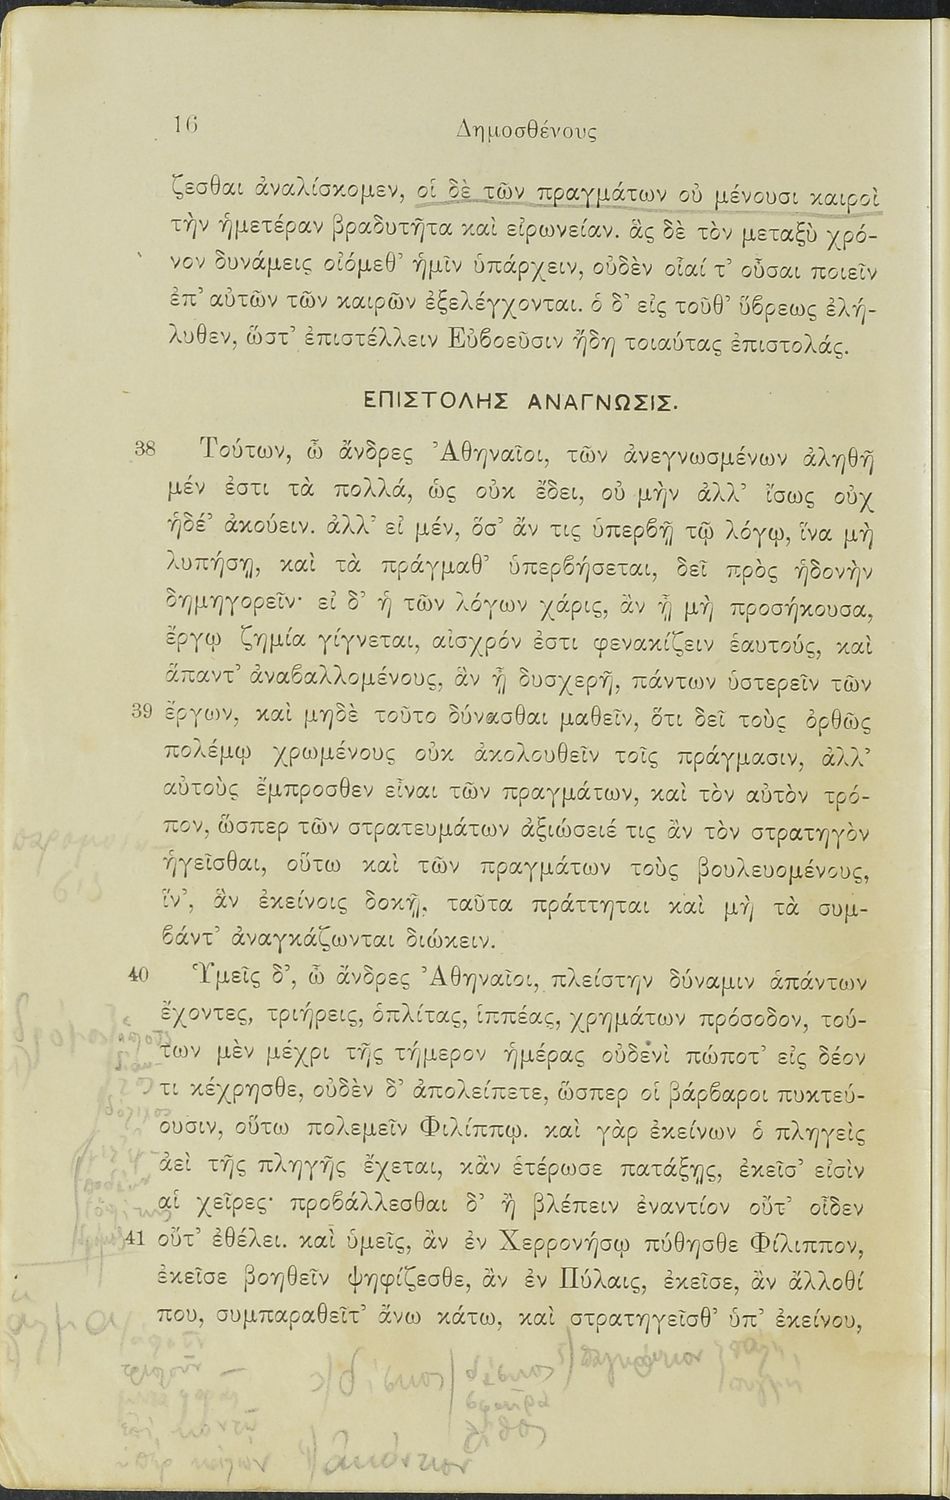 16
Δημοσθένους
ζεσθαι ἀναλίσκομεν, οἱ δὲ τῶν πραγμάτων οὐ μένουσι καιροὶ
τὴν ἡμετέραν βραδυτῆτα καὶ εἰρωνείαν. ἃς δὲ τὸν μεταξὺ χρό-
νον δυνάμεις οἰόμεθ’ ἡμῖν ὑπάρχειν, οὐδὲν οἷαί τ’ οὖσαι ποιεῖν
ἐπ’ αὐτῶν τῶν καιρῶν ἐξελέγχονται. ὁ δ’ εἰς τοῦθ’ ὕβρεως ἐλή-
λυθεν, ὥστ’ ἐπιστέλλειν Εὐβοεῦσιν ἤδη τοιαύτας ἐπιστολάς.
ΕΠΙΣΤΟΛΗΣ ΑΝΑΓΝΩΣΙΣ.
38 Τούτων, ὦ ἄνδρες Ἀθηναῖοι, τῶν ἀνεγνωσμένων ἀληθῆ
μέν ἐστι τὰ πολλά, ὡς οὐκ ἔδει, οὐ μὴν ἀλλ’ ἴσως οὐχ
ἡδέ’ ἀκούειν. ἀλλ’ εἰ μέν, ὅσ’ ἄν τις ὑπερβῇ τῷ λόγῳ, ἵνα μὴ
λυπήσῃ, καὶ τὰ πράγμαθ’ ὑπερβήσεται, δεῖ πρὸς ἡδονὴν
δημηγορεῖν· εἰ δ’ ἡ τῶν λόγων χάρις, ἂν ᾖ μὴ προσήκουσα,
ἔργῳ ζημία γίγνεται, αἰσχρόν ἐστι φενακίζειν ἑαυτούς, καὶ
ἅπαντ’ ἀναβαλλομένους, ἂν ᾖ δυσχερῆ, πάντων ὑστερεῖν τῶν
39 ἔργων, καὶ μηδὲ τοῦτο δύνασθαι μαθεῖν, ὅτι δεῖ τοὺς ὀρθῶς
πολέμῳ χρωμένους οὐκ ἀκολουθεῖν τοῖς πράγμασιν, ἀλλ’
αὐτοὺς ἔμπροσθεν εἶναι τῶν πραγμάτων, καὶ τὸν αὐτὸν τρό-
πον, ὥσπερ τῶν στρατευμάτων ἀξιώσειέ τις ἂν τὸν στρατηγὸν
ἡγεῖσθαι, οὕτω καὶ τῶν πραγμάτων τοὺς βουλευομένους,
ἵν’, ἃν ἐκείνοις δοκῇ, ταῦτα πράττηται καὶ μὴ τὰ συμ-
βάντ’ ἀναγκάζωνται διώκειν.
40 Ὑμεῖς δ’, ὦ ἄνδρες Ἀθηναῖοι, πλείστην δύναμιν ἁπάντων
ἔχοντες, τριήρεις, ὁπλίτας, ἱππέας, χρημάτων πρόσοδον, τού-
των μὲν μέχρι τῆς τήμερον ἡμέρας οὐδενὶ πώποτ’ εἰς δέον
τι κέχρησθε, οὐδὲν δ’ ἀπολείπετε, ὥσπερ οἱ βάρβαροι πυκτεύ-
ουσιν, οὕτω πολεμεῖν Φιλίππῳ. καὶ γὰρ ἐκείνων ὁ πληγεὶς
ἀεὶ τῆς πληγῆς ἔχεται, κἂν ἑτέρωσε πατάξῃς, ἐκεῖσ’ εἰσὶν
αἱ χεῖρες· προβάλλεσθαι δ’ ἢ βλέπειν ἐναντίον οὔτ’ οἶδεν
41 οὔτ’ ἐθέλει. καὶ ὑμεῖς, ἂν ἐν Χερρονήσῳ πύθησθε Φίλιππον,
ἐκεῖσε βοηθεῖν ψηφίζεσθε, ἂν ἐν Πύλαις, ἐκεῖσε, ἂν ἄλλοθί
που, συμπαραθεῖτ’ ἄνω κάτω, καὶ στρατηγεῖσθ’ ὑπ’ ἐκείνου,
δίσκος
ἀκόντιον